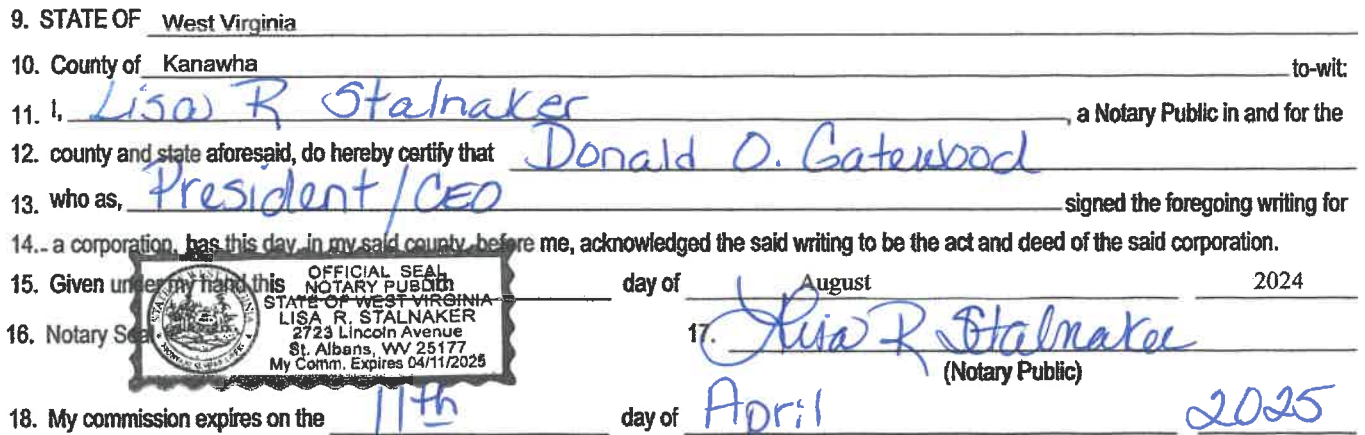 9. STATE OF West Virginia
10. County of Kanawha to-wit:
11. I, Lisa R Stalnaker, a Notary Public in and for the
12. county and state aforesaid, do hereby certify that Donald O. Gatewood
13. who as, President/CEO signed the foregoing writing for
14. a corporation, has this day, in my said county, before me, acknowledged the said writing to be the act and deed of the said corporation.
15. Given under my hand this day of August 2024
OFFICIAL SEAL
NOTARY PUBLIC
STATE OF WEST VIRGINIA
LISA R. STALNAKER
2723 Lincoln Avenue
St. Albans, WV 25177
My Comm. Expires 04/11/2025
16. Notary Seal 17. Lisa R Stalnaker
(Notary Public)
18. My commission expires on the 11th day of April 2025